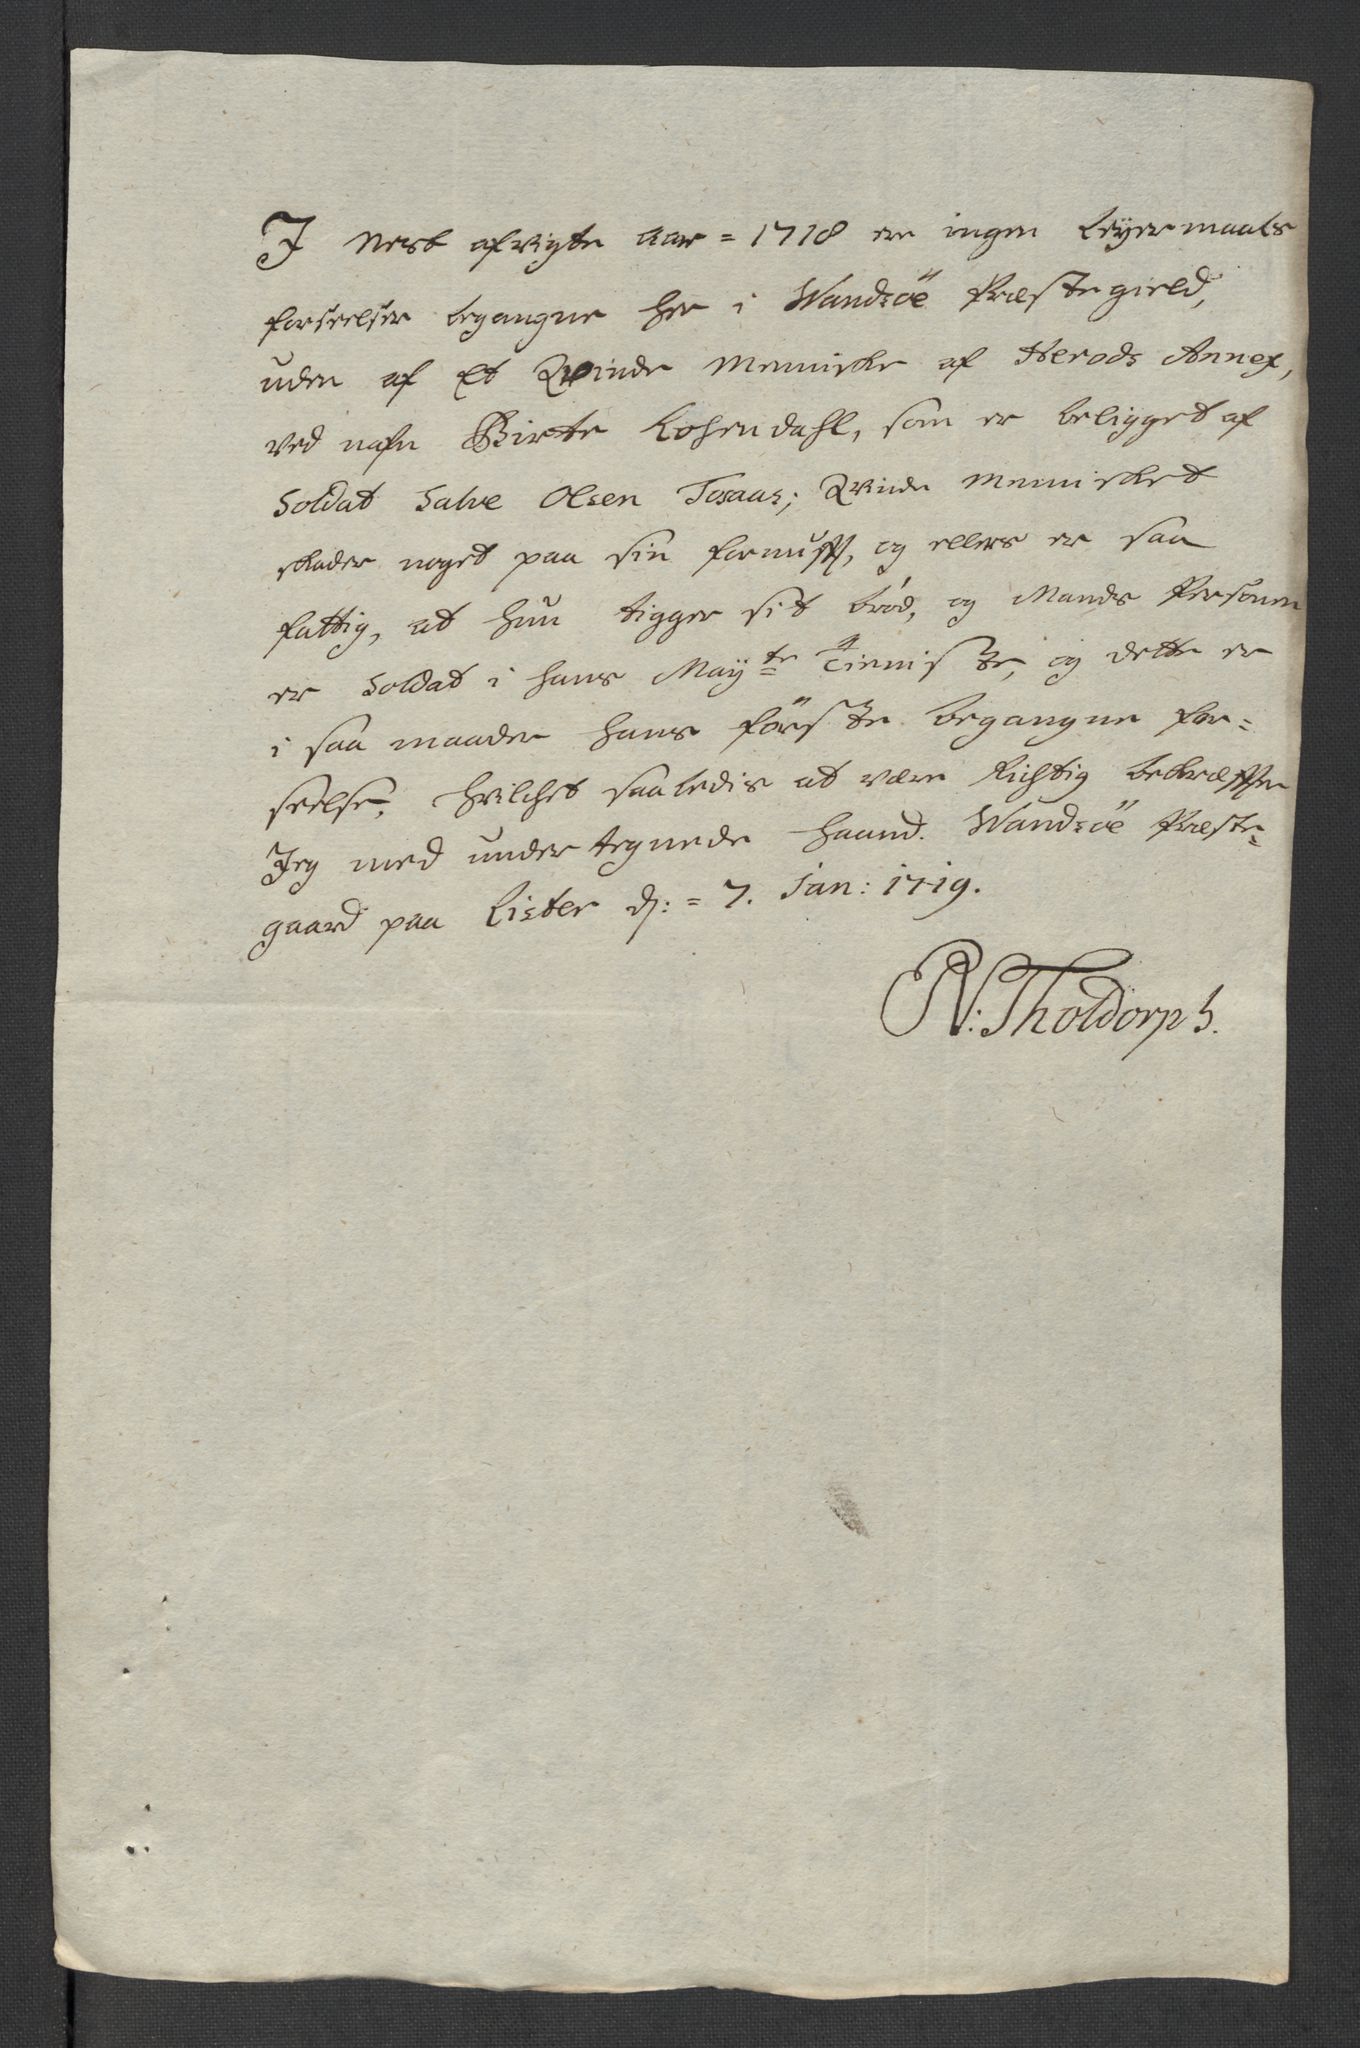 I nest afvigte aar = 1718 ere ingen Leÿermaals
forseelser begangne her i Wandsöe Præstegield,
uden af Et Qvinde Menniske af Herods Annex,
ved nafn Birte Kohendahl, som er beligget af
Soldat Salve Olsen Tosaas; Qvinde Mennisket
skader noget paa sin fornufft, og ellers er saa
fattig, at hun tigger sit brød, og Mands Personen
er Soldat i hans Mayte Tieniste, og dette er
i saa maader hans förste begangne for=
seelse, hvilchet saaledis at være Richtig bekræffter
Jeg med undertegnede haand. Wandsöe Præste=
gaard paa Lister d: = 7. Jan: 1719.
N: Tholdorph.